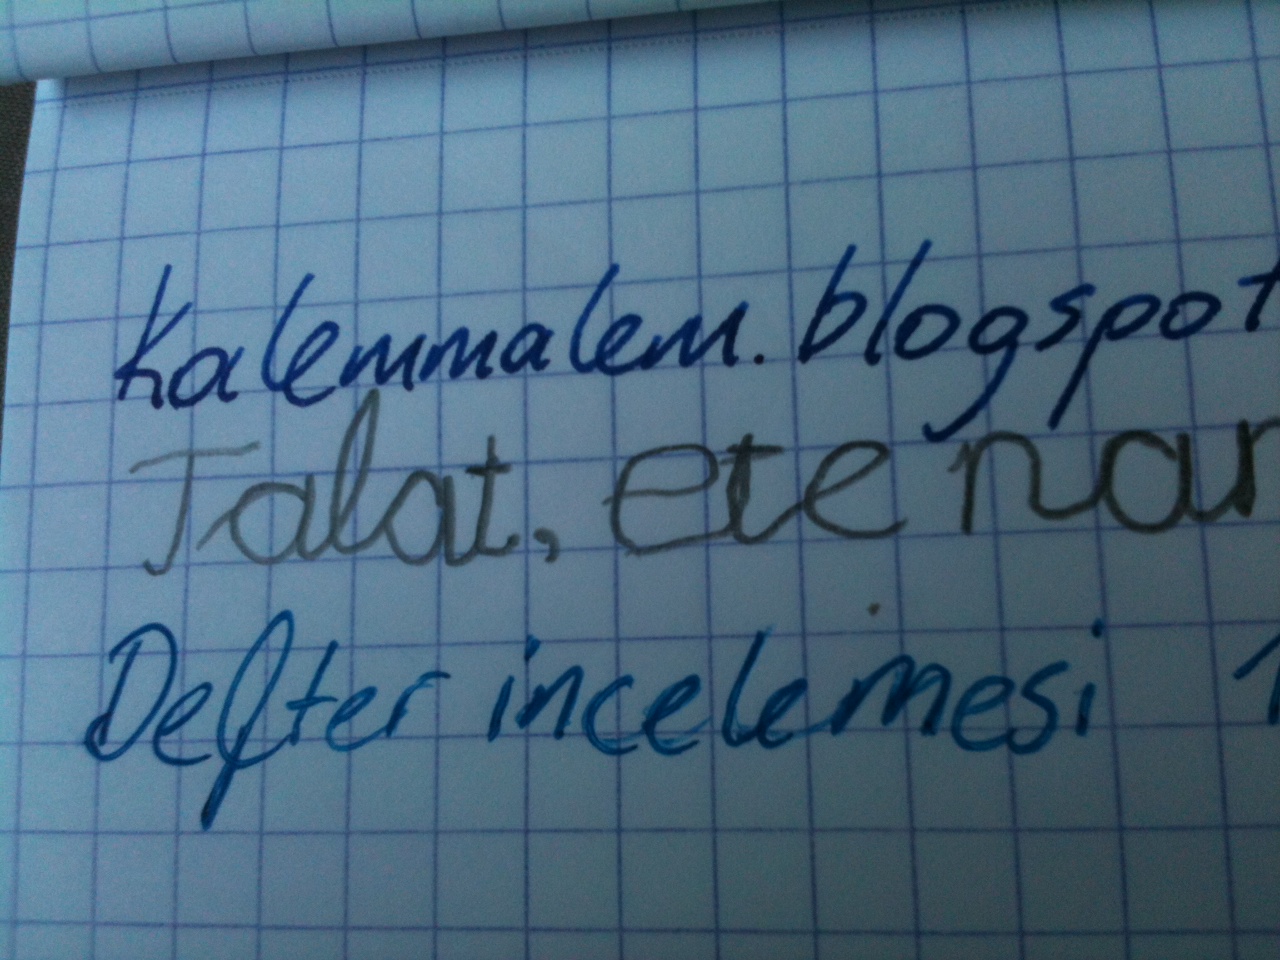 Kalemmalem.blogspot
Talat, ete nar
Defter incelemesi 1